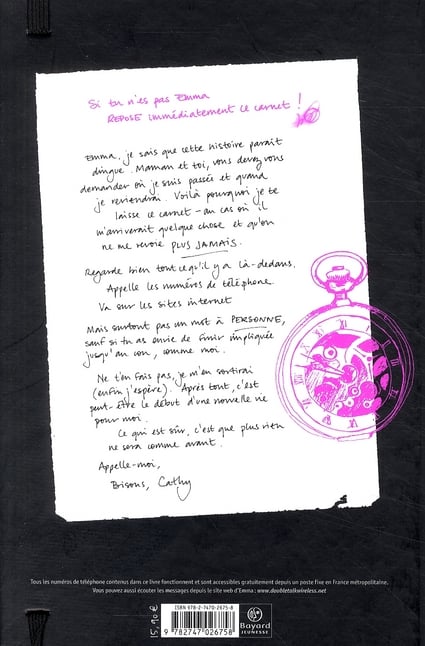 Si tu n'es pas Emma
REPOSE immédiatement ce carnet !
Emma, je sais que cette histoire paraît
dingue. Maman et toi, vous devez vous
demander où je suis passée et quand
je reviendrai. Voilà pourquoi je te
laisse ce carnet - au cas où il
m'arriverait quelque chose et qu'on
ne me revoie PLUS JAMAIS.
Regarde bien tout ce qu'il y a là-dedans.
Appelle les numéros de téléphone.
Va sur les sites internet
Mais surtout pas un mot à PERSONNE,
sauf si tu as envie de finir impliquée
jusqu'au cou, comme moi.
Ne t'en fais pas, je m'en sortirai
(enfin j'espère). Après tout, c'est
peut-être le début d'une nouvelle vie
pour moi.
Ce qui est sûr, c'est que plus rien
ne sera comme avant.
Appelle-moi,
Bisous, Cathy
Tous les numéros de téléphone contenus dans ce livre fonctionnent et sont accessibles gratuitement depuis un poste fixe en France métropolitaine.
Vous pouvez aussi écouter les messages depuis le site web d'Emma : www.doubletalkwireless.net
15,90 €
ISBN 978-2-7470-2675-8
9 782747 026758
Bayard
JEUNESSE